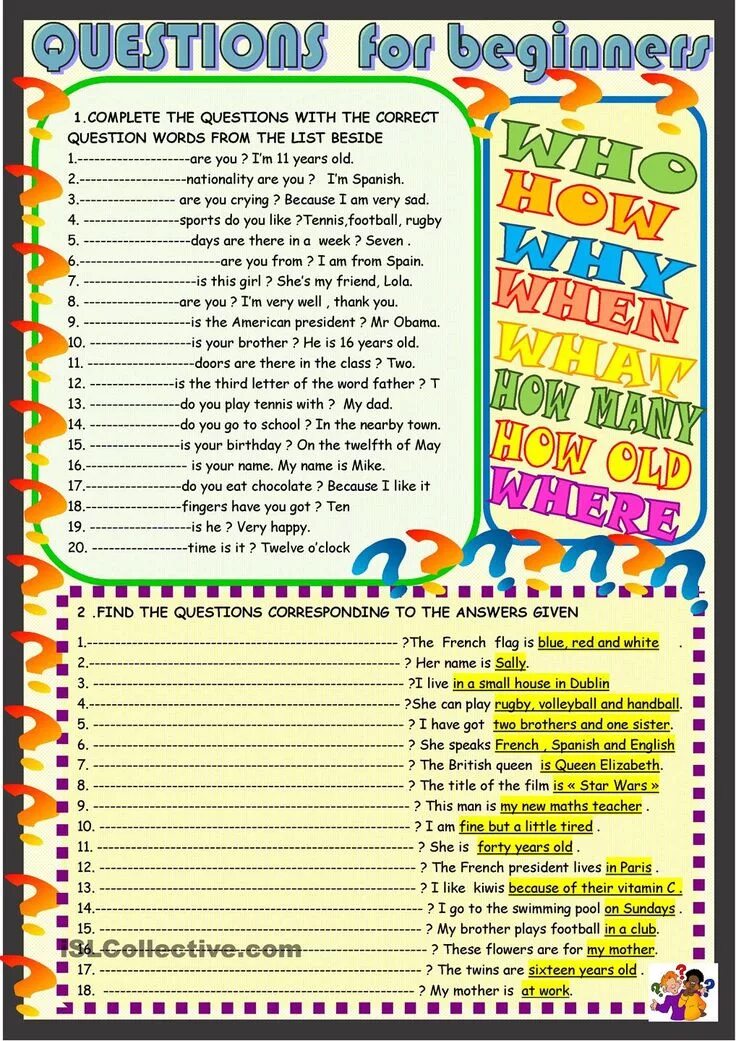 QUESTIONS for beginners
1.COMPLETE THE QUESTIONS WITH THE CORRECT
QUESTION WORDS FROM THE LIST BESIDE
1.---------------------are you ? I'm 11 years old.
2.--------------------nationality are you ? I'm Spanish.
3.------------------ are you crying ? Because I am very sad.
4. ------------------sports do you like ?Tennis,football, rugby
5. --------------------days are there in a week ? Seven .
6.---------------------------are you from ? I am from Spain.
7. ---------------------is this girl ? She's my friend, Lola.
8. ------------------are you ? I'm very well , thank you.
9. --------------------is the American president ? Mr Obama.
10. ------------------- is your brother ? He is 16 years old.
11. --------------------doors are there in the class ? Two.
12. ----------------is the third letter of the word father ? T
13. -----------------do you play tennis with ? My dad.
14. -----------------do you go to school ? In the nearby town.
15. -----------------is your birthday ? On the twelfth of May
16.------------------- is your name. My name is Mike.
17.------------------do you eat chocolate ? Because I like it
18.------------------fingers have you got ? Ten
19. -------------------is he ? Very happy.
20. ------------------time is it ? Twelve o'clock
WHO
HOW
WHY
WHEN
WHAT
HOW MANY
HOW OLD
WHERE
2 .FIND THE QUESTIONS CORRESPONDING TO THE ANSWERS GIVEN
1.---------------------------------------------------------- ?The French flag is blue, red and white .
2.---------------------------------------------------------- ? Her name is Sally.
3. ---------------------------------------------------------- ?I live in a small house in Dublin
4.---------------------------------------------------------- ?She can play rugby, volleyball and handball.
5. ---------------------------------------------------------- ? I have got two brothers and one sister.
6. ---------------------------------------------------------- ? She speaks French , Spanish and English
7. ---------------------------------------------------------- ? The British queen is Queen Elizabeth.
8. ---------------------------------------------------------- ? The title of the film is « Star Wars »
9. ---------------------------------------------------------- ? This man is my new maths teacher .
10. ---------------------------------------------------------- ? I am fine but a little tired .
11. ---------------------------------------------------------- ? She is forty years old .
12. ---------------------------------------------------------- ? The French president lives in Paris .
13. ---------------------------------------------------------- ? I like kiwis because of their vitamin C .
14.---------------------------------------------------------- ? I go to the swimming pool on Sundays .
15. ---------------------------------------------------------- ? My brother plays football in a club.
16 ---------------------------------------------------------- ? These flowers are for my mother.
iSLCollective.com
17. ---------------------------------------------------------- ? The twins are sixteen years old .
18. ---------------------------------------------------------- ? My mother is at work.